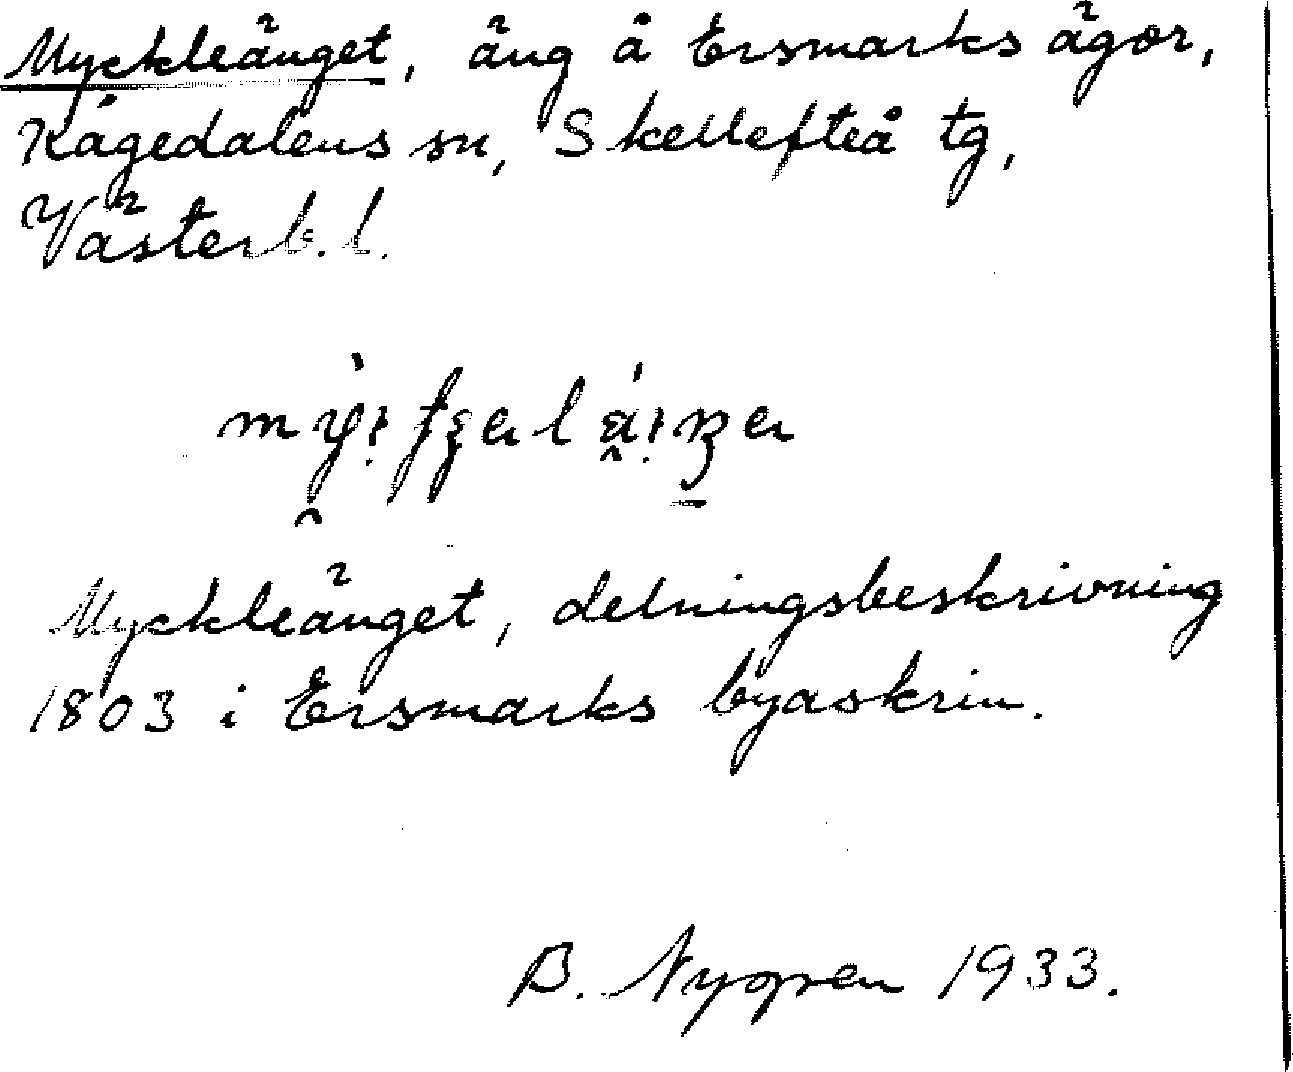 Myckleänget, äng å Ersmarks ägor,
Kågedalens sn, Skellefteå tg,
Västerb. l.
Myckleänget, delningsbeskrivning
1803 i Ersmarks byaskrin.
B. Nygren 1933.